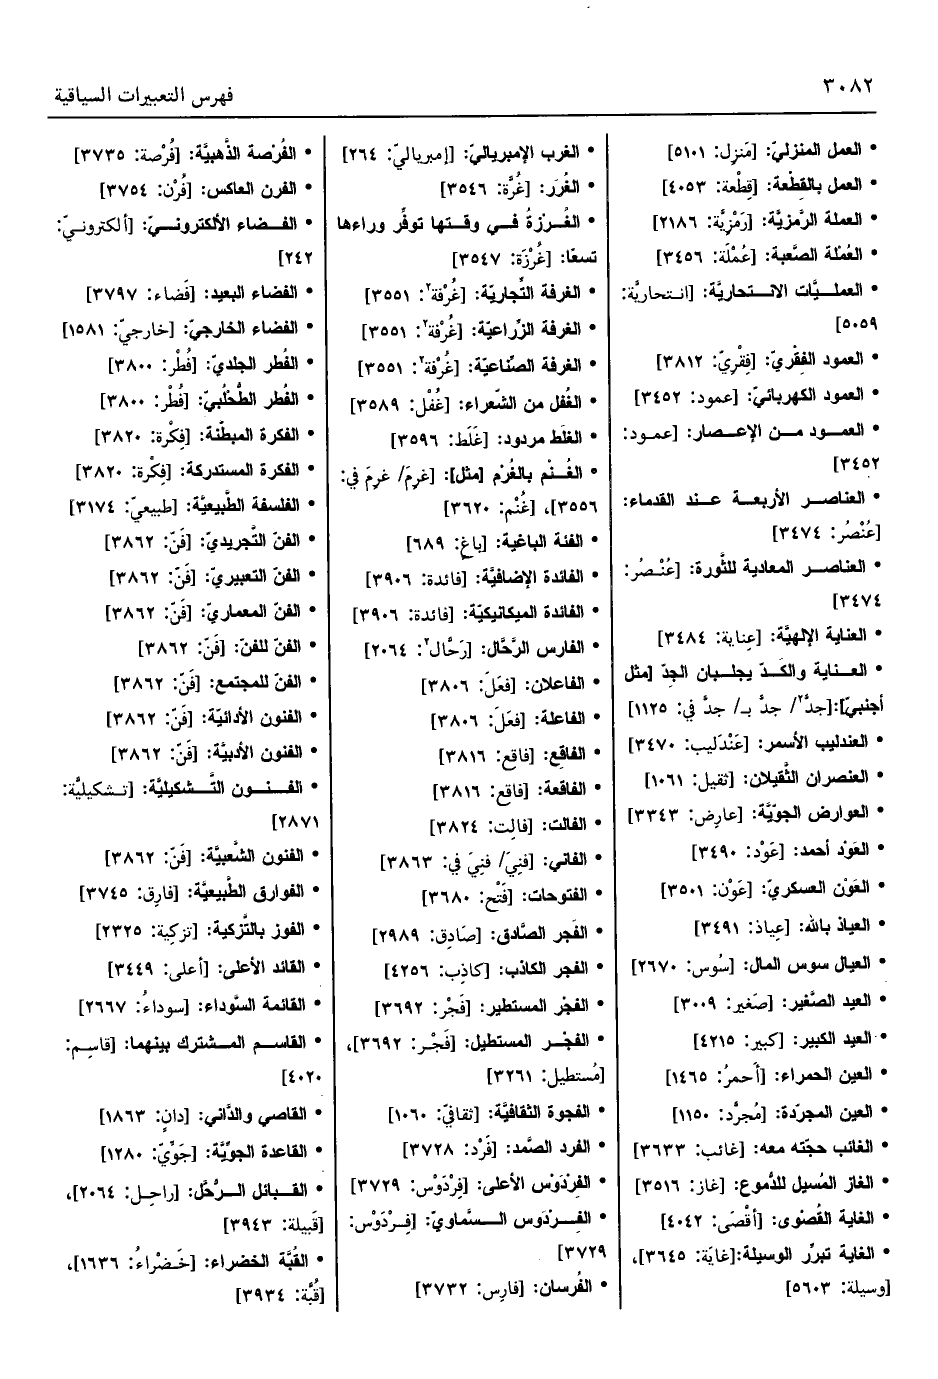 ٣٠٨٢
فهرس التعبيرات السياقية
• العمل المنزليّ: [مَنزِل: ٥١٠١]
• العمل بالقِطْعة: [قِطْعة: ٤٠٥٣]
• العملة الرَّمزيَّة: [رَمْزِيَّة: ٢١٨٦]
• العُمْلة الصَّعبة: [عُمْلَة: ٣٤٥٦]
• العملــيَّات الانــتحاريَّة: [انـتحاريَّة:
٥٠٥٩]
• العمود الفِقْريّ: [فِقْرِيّ: ٣٨١٢]
• العمود الكهربائيّ: [عمود: ٣٤٥٢]
• العمــود مــن الإعــصار: [عمـود:
٣٤٥٢]
• العناصــر الأربعــة عــند القدماء:
[عُنْصُر: ٣٤٧٤]
• العناصــر المعادية للثَّورة: [عُنْـصُر:
٣٤٧٤]
• العناية الإلهيَّة: [عِناية: ٣٤٨٤]
• العــناية والكَــدّ يجلــبان الجِدّ [مثل
أجنبيّ]:[جدَّ٢/ جدَّ بـ/ جدَّ في: ١١٢٥]
• العندليب الأسمر: [عَنْدَليب: ٣٤٧٠]
• العنصران الثَّقيلان: [ثقيل: ١٠٦١]
• العوارض الجوّيَّة: [عارِض: ٣٣٤٣]
• العَوْد أحمد: [عَوْد: ٣٤٩٠]
• العَوْن العسكريّ: [عَوْن: ٣٥٠١]
• العياذ بالله: [عِياذ: ٣٤٩١]
• العيال سوس المال: [سُوس: ٢٦٧٠]
• العيد الصَّغير: [صَغير: ٣٠٠٩]
• العيد الكبير: [كبير: ٤٢١٥]
• العين الحمراء: [أَحمرُ: ١٤٦٥]
• العين المجرّدة: [مُجرَّد: ١١٥٠]
• الغائب حجّته معه: [غائب: ٣٦٣٣]
• الغاز المُسيل للدُّموع: [غاز: ٣٥١٦]
• الغاية القُصْوى: [أقْصَى: ٤٠٤٢]
• الغاية تبرِّر الوسيلة:[غايَة: ٣٦٤٥]،
[وسيلة: ٥٦٠٣]
• الغرب الإمبرياليّ: [إمبرياليّ: ٢٦٤]
• الغُرَر: [غُرَّة: ٣٥٤٦]
• الغُــرْزةُ فــي وقــتها توفِّر وراءها
تسعًا: [غُرْزَة: ٣٥٤٧]
• الغرفة التِّجاريّة: [غُرْفة٢: ٣٥٥١]
• الغرفة الزِّراعيّة: [غُرْفة٢: ٣٥٥١]
• الغرفة الصِّناعيّة: [غُرْفة٢: ٣٥٥١]
• الغُفل من الشّعراء: [غُفْل: ٣٥٨٩]
• الغلَط مردود: [غَلَط: ٣٥٩٦]
• الغُــنْم بالغُرْم [مثل]: [غرِمَ/ غرِمَ في:
٣٥٥٦]، [غُنْم: ٣٦٢٠]
• الفئة الباغية: [باغٍ: ٦٨٩]
• الفائدة الإضافيَّة: [فائدة: ٣٩٠٦]
• الفائدة الميكانيكيّة: [فائدة: ٣٩٠٦]
• الفارس الرَّحَّال: [رَحَّال٢: ٢٠٦٤]
• الفاعلان: [فعَلَ: ٣٨٠٦]
• الفاعلة: [فعَلَ: ٣٨٠٦]
• الفاقع: [فاقِع: ٣٨١٦]
• الفاقعة: [فاقِع: ٣٨١٦]
• الفالت: [فالِت: ٣٨٢٤]
• الفاني: [فنِيَ/ فنِيَ في: ٣٨٦٣]
• الفتوحات: [فَتْح: ٣٦٨٠]
• الفَجر الصَّادق: [صَادِق: ٢٩٨٩]
• الفجر الكاذب: [كاذِب: ٤٢٥٦]
• الفجْر المستطير: [فَجْر: ٣٦٩٢]
• الفجْــر المستطيل: [فَجْـر: ٣٦٩٢]،
[مُستطيل: ٣٢٦١]
• الفجوة الثقافيَّة: [ثقافيّ: ١٠٦٠]
• الفرد الصَّمد: [فَرْد: ٣٧٢٨]
• الفِرْدَوْس الأعلى: [فِرْدَوْس: ٣٧٢٩]
• الفِــرْدَوْس الــسَّماويّ: [فِـرْدَوْس:
٣٧٢٩]
• الفُرسان: [فارِس: ٣٧٣٢]
• الفُرْصة الذَّهبيَّة: [فُرْصة: ٣٧٣٥]
• الفرن العاكس: [فُرْن: ٣٧٥٤]
• الفــضاء الألكترونــيّ: [ألكترونـيّ:
٢٤٢]
• الفضاء البعيد: [فَضاء: ٣٧٩٧]
• الفضاء الخارجيّ: [خارجيّ: ١٥٨١]
• الفُطر الجلديّ: [فُطْر: ٣٨٠٠]
• الفُطر الطُّحْلُبيّ: [فُطْر: ٣٨٠٠]
• الفكرة المبطَّنة: [فِكْرة: ٣٨٢٠]
• الفكرة المستدركة: [فِكْرة: ٣٨٢٠]
• الفلسفة الطَّبيعيَّة: [طبيعيّ: ٣١٧٤]
• الفنّ التَّجريديّ: [فَنّ: ٣٨٦٢]
• الفنّ التعبيريّ: [فَنّ: ٣٨٦٢]
• الفنّ المعماريّ: [فَنّ: ٣٨٦٢]
• الفنّ للفنّ: [فَنّ: ٣٨٦٢]
• الفنّ للمجتمع: [فَنّ: ٣٨٦٢]
• الفنون الأدائيّة: [فَنّ: ٣٨٦٢]
• الفنون الأدبيَّة: [فَنّ: ٣٨٦٢]
• الفــنــون التَّــشكيليَّة: [تـشكيليَّة:
٢٨٧١]
• الفنون الشَّعبيَّة: [فَنّ: ٣٨٦٢]
• الفوارق الطَّبيعيَّة: [فارِق: ٣٧٤٥]
• الفوز بالتَّزكية: [تزكِية: ٢٣٢٥]
• القائد الأعلى: [أعلى: ٣٤٤٩]
• القائمة السَّوداء: [سوداءُ: ٢٦٦٧]
• القاســم المــشترك بينهما: [قاسِم:
٤٠٢٠]
• القاصي والدَّاني: [دانٍ: ١٨٦٣]
• القاعدة الجويَّة: [جَوِّيّ: ١٢٨٠]
• القــبائل الــرُّحَّل: [راحِـل: ٢٠٦٤]،
[قَبيلة: ٣٩٤٣]
• القُبَّة الخضراء: [خَـضْراءُ: ١٦٣٦]،
[قُبَّة: ٣٩٣٤]